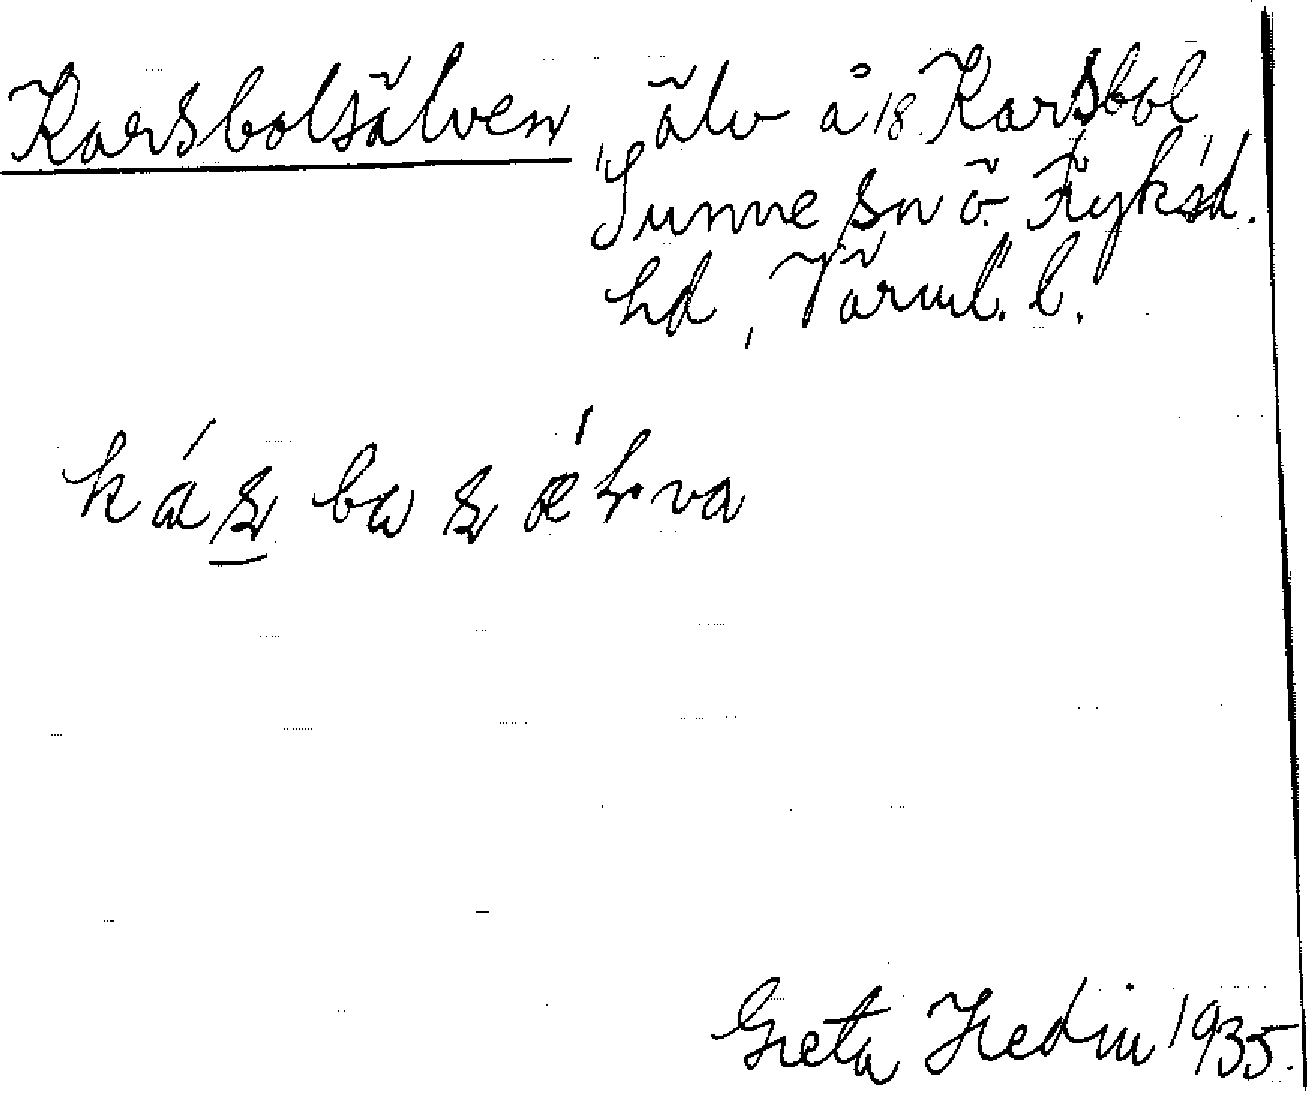 Karsbolsälven, älv å 18. Karsbol,
Sunne sn ö. Fryksd.
hd, Värml. l.
káʂ ba ʂ ǽɽ va
Greta Hedin 1935.